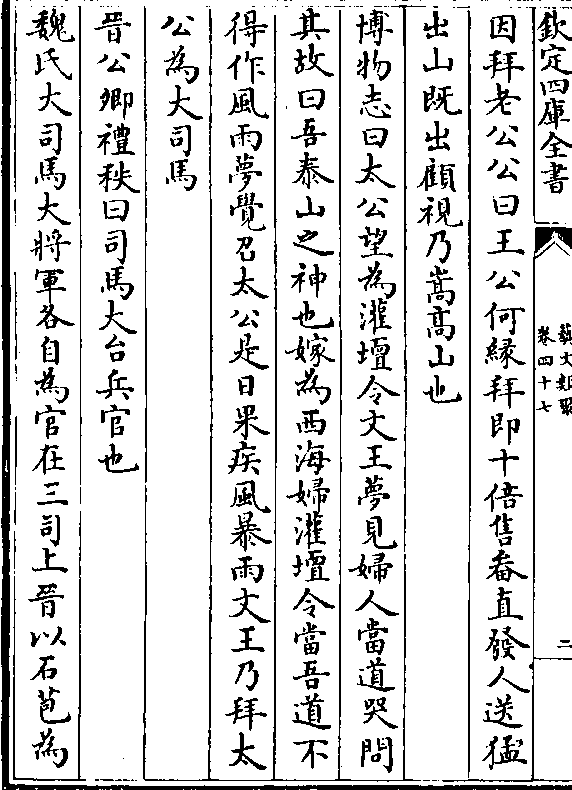 欽定四庫全書
藝文類聚
卷四十七
二
因拜老公公曰王公何緣拜即十倍售畚直發人送猛
出山既出顧視乃嵩高山也
博物志曰太公望為灌壇令文王夢見婦人當道哭問
其故曰吾泰山之神也嫁為西海婦灌壇令當吾道不
得作風雨夢覺召太公是日果疾風暴雨文王乃拜太
公為大司馬
晉公卿禮秩曰司馬大台兵官也
魏氏大司馬大將軍各自為官在三司上晉以石苞為